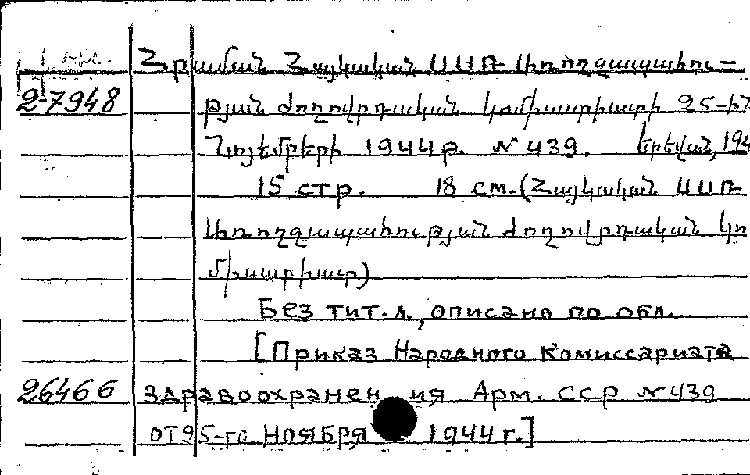 Հրաման Հայկական ՍՍՌ Առողջապահու-
2-7948 թյան Ժողովրդական կոմիսարիատի 25-ին
Նոյեմբերի 1944թ. № 439. Երեվան, 194
15 стр. 18 см. (Հայկական ՍՍՌ
Առողջապահության Ժողովրդական կո
միսարիատ)
Без тит. л., описано по обл.
[Приказ Народного Комиссариата
26466 здравоохранения Арм. ССР № 439
от 25-го Ноября 1944 г.]